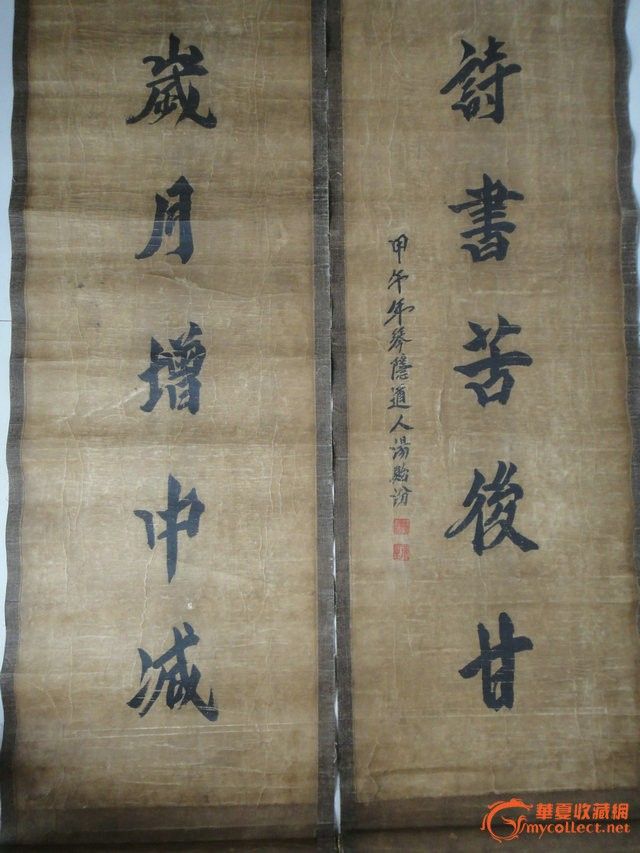 詩書苦後甘
甲午年琴隱道人湯貽汾
歲月增中減
華夏收藏網
mycollect.net